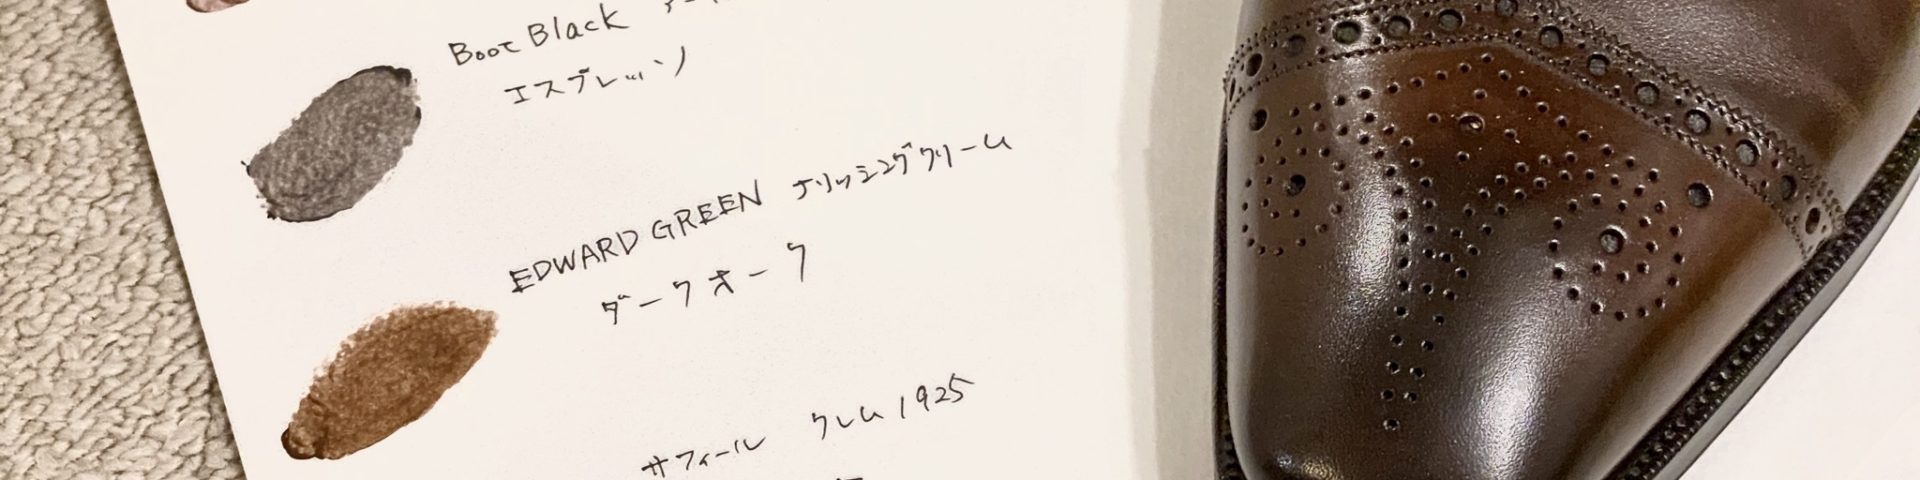 Boot Black
エスプレッソ
EDWARD GREEN ポリッシングクリーム
ダークオーク
サフィール クレム1925